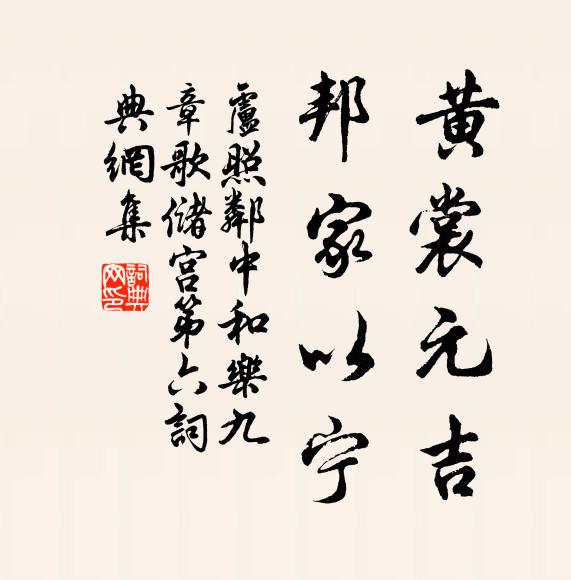 黄裳元吉
邦家以宁
盧照鄰中和樂九
章歌儲宫第六詞
典網集
詞典网印